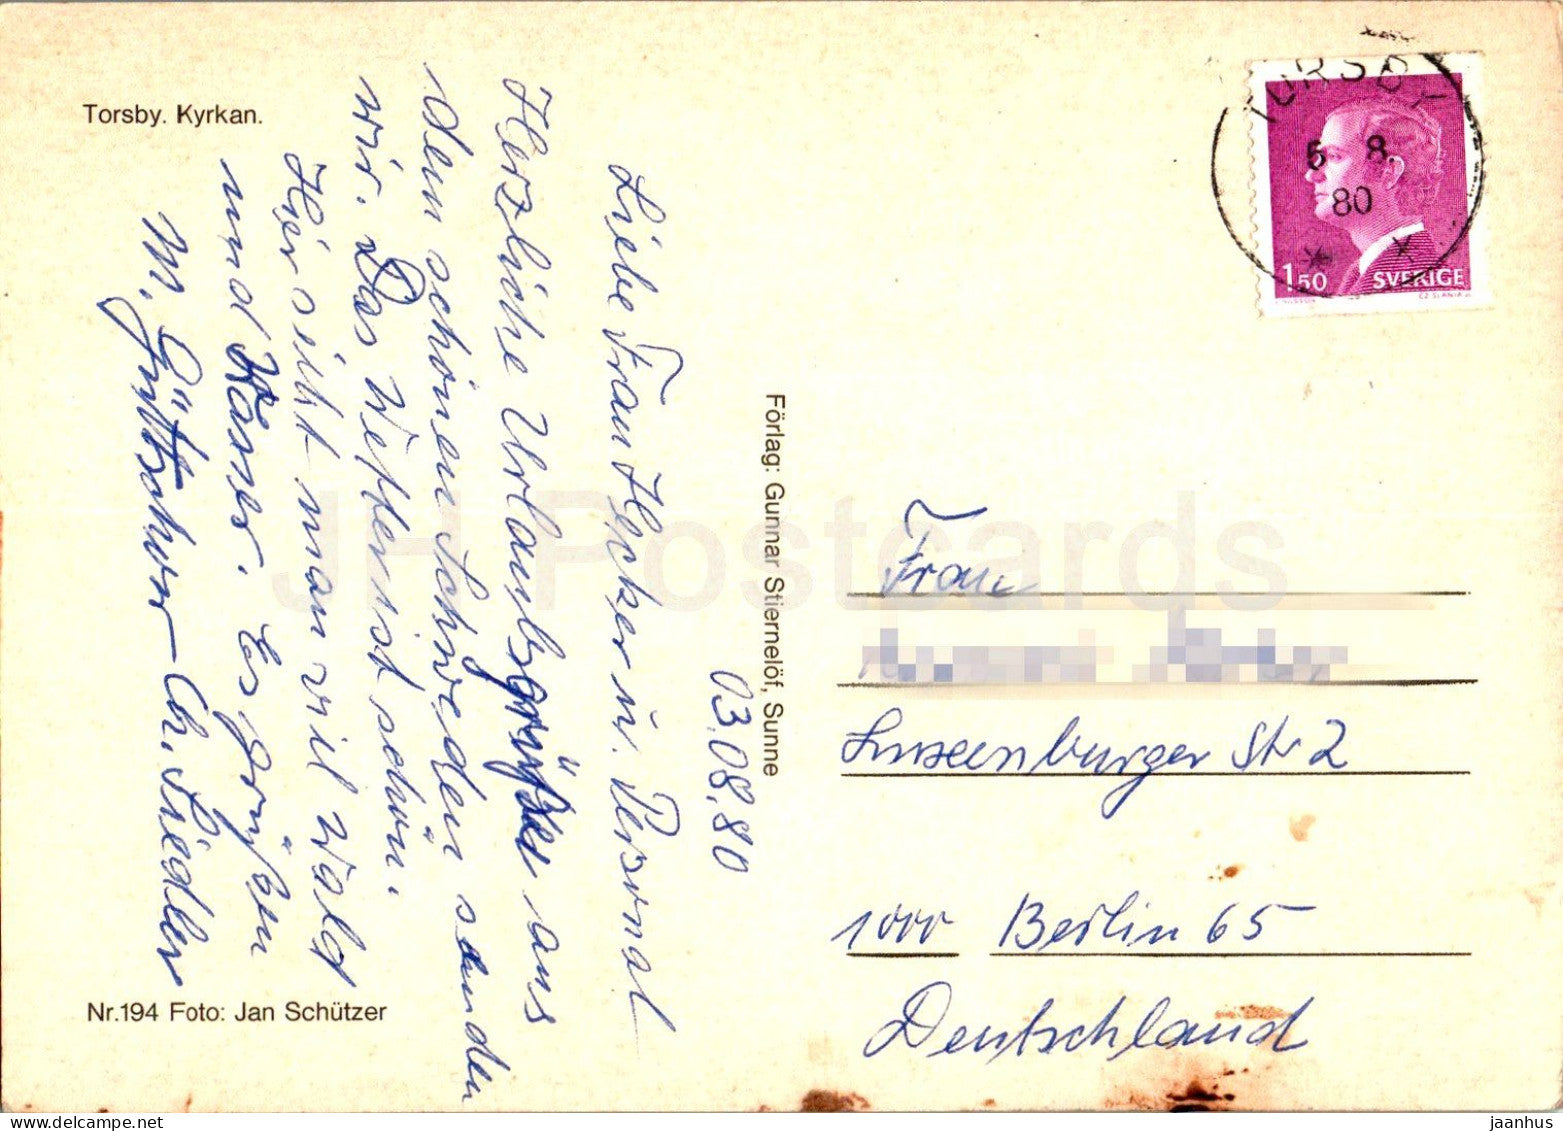 Torsby. Kyrkan.
03.08.80
Liebe Frau Hecker u. Personal
Herzliche Urlaubsgrüße aus
dem schönen Schweden senden
wir. Das Wetter ist schön.
Hier sieht man viel Wald
und Wasser. Es grüßen
M. Götz
Ch. Siedler
Nr.194 Foto: Jan Schützer
Förlag: Gunnar Stiernelöf, Sunne
TORSBY
5 8.
80
1 50 SVERIGE
CZ SLANIA
Frau
Luxemburger Str 2
1000 Berlin 65
Deutschland
JH Postcards
jaanhus